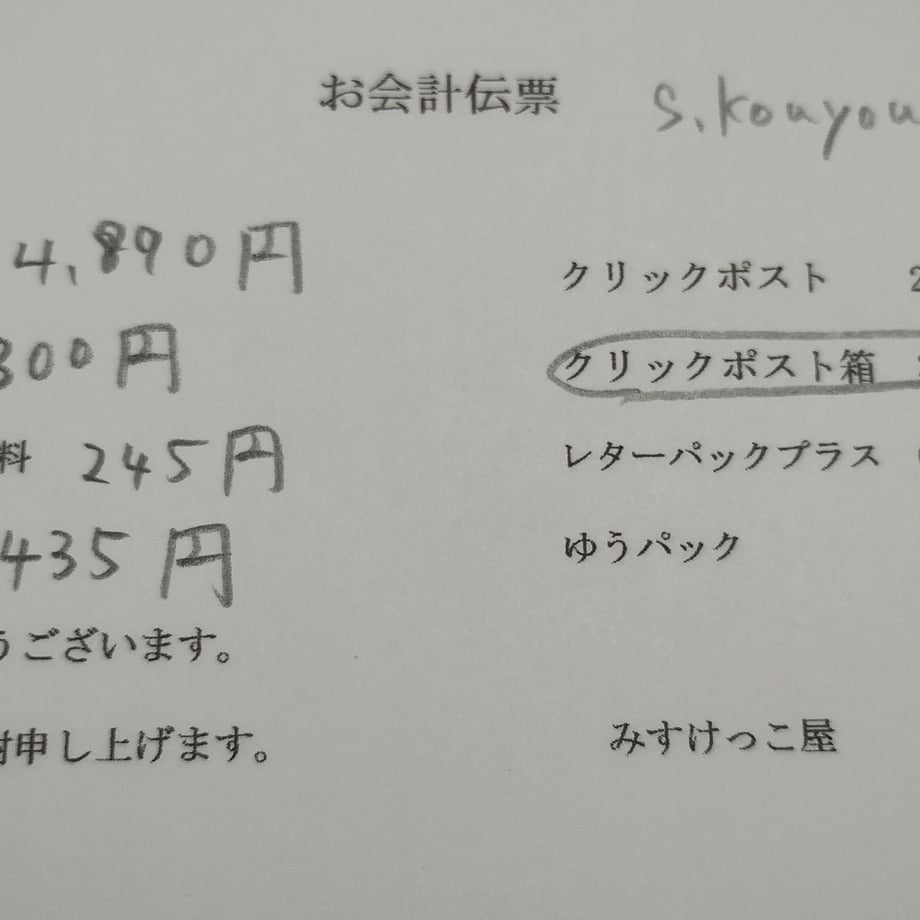 お会計伝票
s.kouyou
4,890円
300円
料 245円
435円
うございます。
申し上げます。
クリックポスト
クリックポスト箱
レターパックプラス
ゆうパック
みすけっこ屋